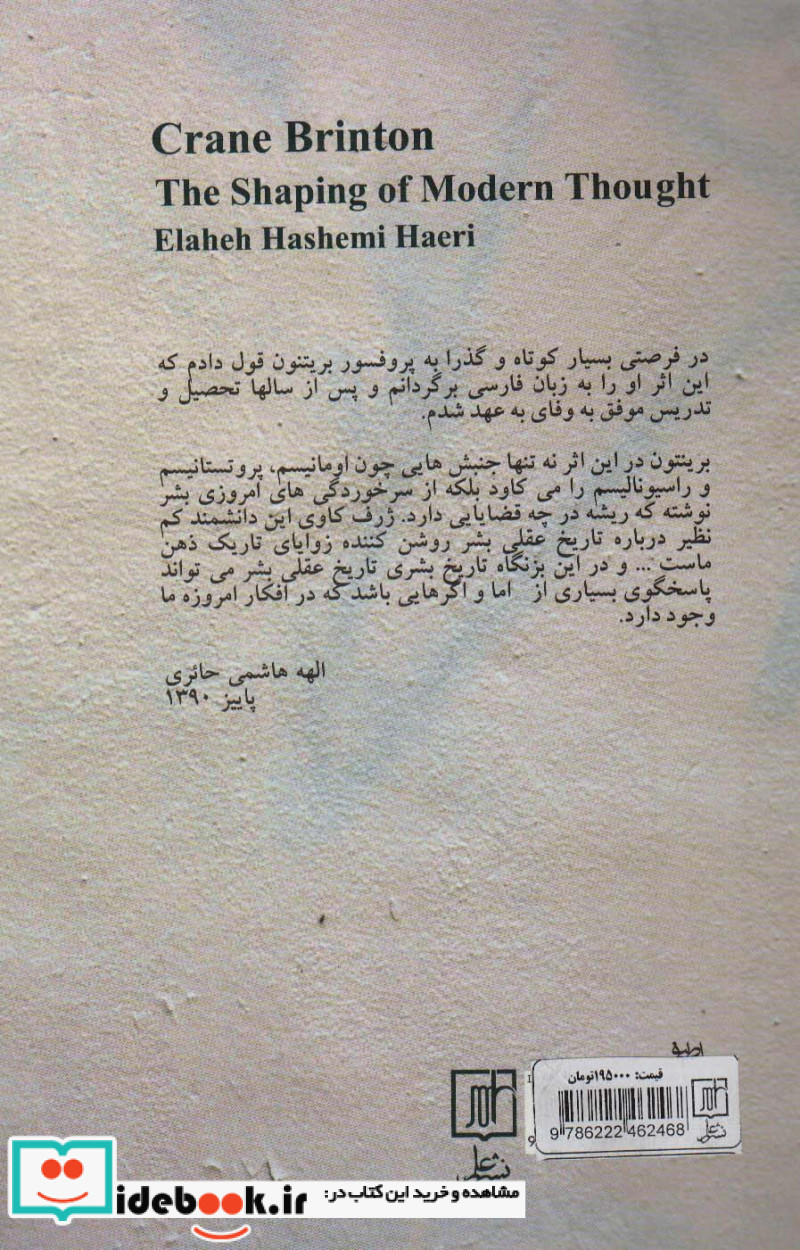 Crane Brinton
The Shaping of Modern Thought
Elaheh Hashemi Haeri
در فرصتی بسیار کوتاه و گذرا به پروفسور بریتنون قول دادم که
این اثر او را به زبان فارسی برگردانم و پس از سالها تحصیل و
تدریس موفق به وفای به عهد شدم.
برینتون در این اثر نه تنها جنبش هایی چون اومانیسم، پروتستانیسم
و راسیونالیسم را می کاود بلکه از سرخوردگی های امروزی بشر
نوشته که ریشه در چه قضایایی دارد. ژرف کاوی این دانشمند کم
نظیر درباره تاریخ عقلی بشر روشن کننده زوایای تاریک ذهن
ماست ... و در این بزنگاه تاریخ بشری تاریخ عقلی بشر می تواند
پاسخگوی بسیاری از اما و اگرهایی باشد که در افکار امروزه ما
وجود دارد.
الهه هاشمی حائری
پاییز ۱۳۹۰
قیمت: ۱۹۵۰۰۰تومان
9 786222 462468
نشر علم
نشر علم
idebook.ir
مشاهده و خرید این کتاب در: